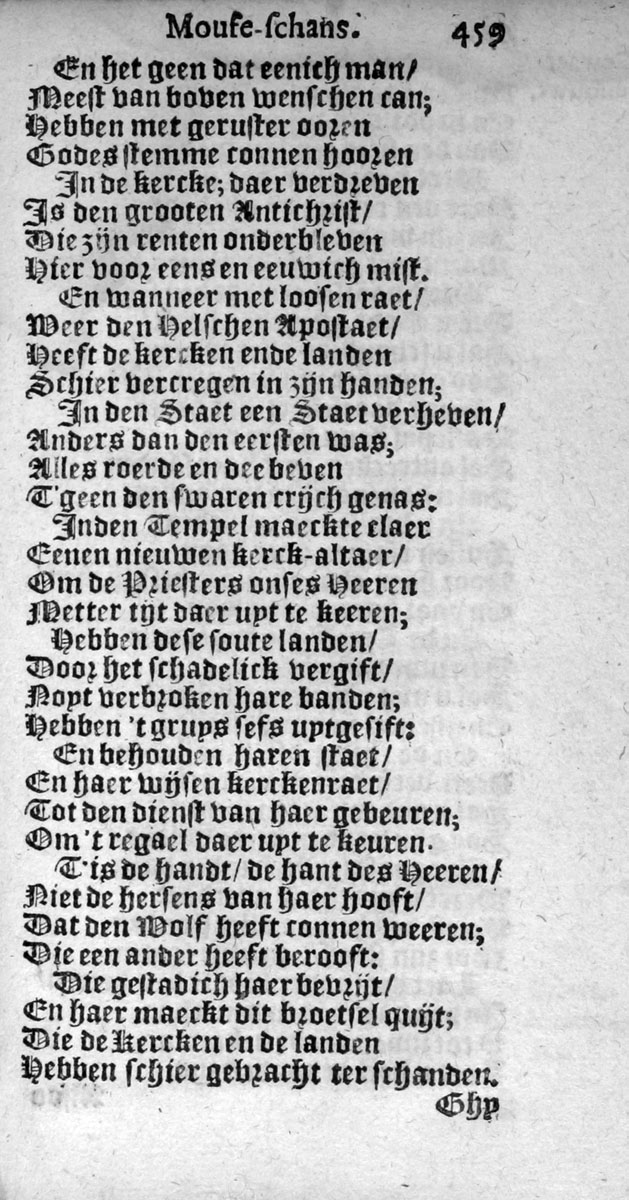 Moufe-schans. 459
En het geen dat eenich man/
Meest van boven wenschen can;
Hebben met geruster ooren
Godes stemme connen hooren
In de kercke; daer verdreven
Is den grooten Antichrist/
Die zijn renten onderbleven
Hier voor eens en eeuwich mist.
En wanneer met loosen raet/
Weer den Helschen Apostaet/
Heeft de kercken ende landen
Schier vercregen in zijn handen;
In den Staet een Staet verheven/
Anders dan den eersten was;
Alles roerde en dee beven
T'geen den swaren crijch genas:
Inden Tempel maeckte claer
Eenen nieuwen kerck-altaer/
Om de Priesters onses Heeren
Metter tijt daer uyt te keeren;
Hebben dese soute landen/
Door het schadelick vergift/
Noyt verbroken hare banden;
Hebben 't gruys sefs uytgesift:
En behouden haren staet/
En haer wijsen kerckenraet/
Tot den dienst van haer gebeuren;
Om 't regael daer uyt te keuren.
T'is de handt/ de hant des Heeren/
Niet de hersens van haer hooft/
Dat den Wolf heeft connen weeren;
Die een ander heeft berooft:
Die gestadich haer bevrijt/
En haer maeckt dit broetsel quijt;
Die de Kercken en de landen
Hebben schier gebracht ter schanden.
Ghy